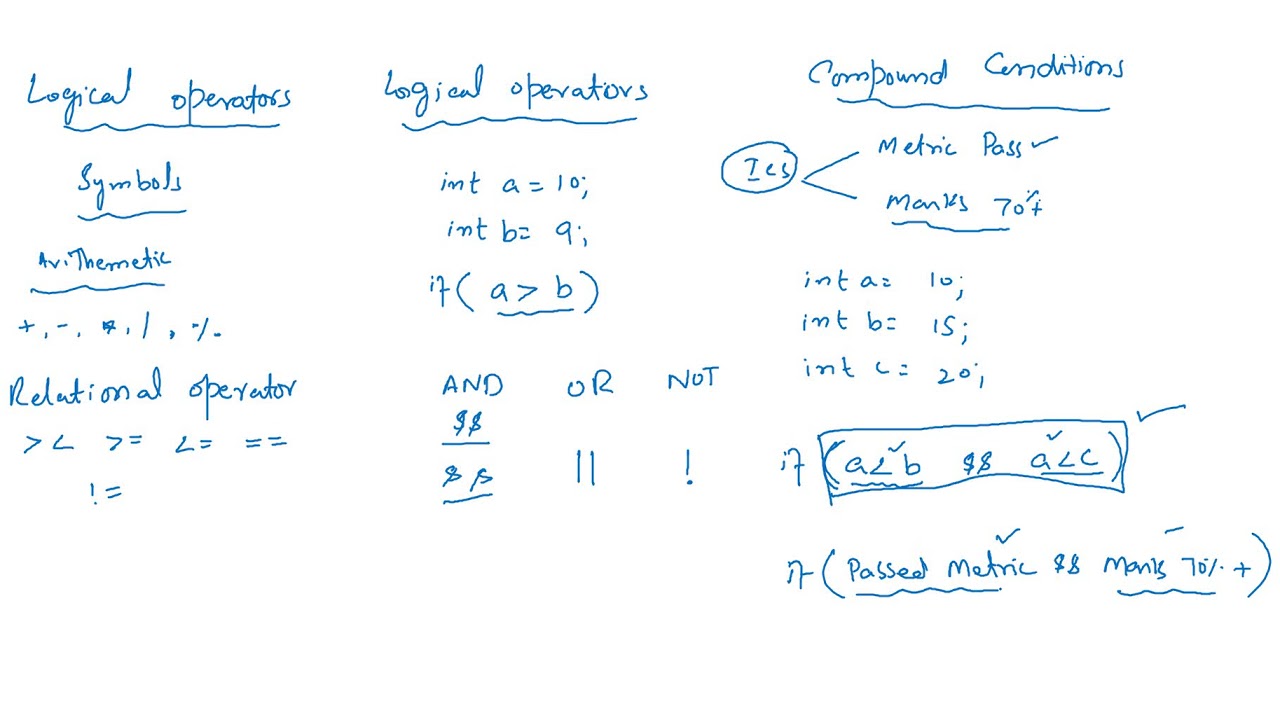 Logical operators
Symbols
Arithemetic
+, -, *, /, %
Relational operator
> < >= <= ==
!=
Logical operators
int a = 10;
int b = 9;
if ( a > b )
AND OR NOT
$$
$$ || !
Compound Conditions
Ics
Metric Pass ✓
Marks 70%+
int a = 10;
int b = 15;
int c = 20;
if (a<b $$ a<c)
if (Passed Metric $$ Marks 70% +)